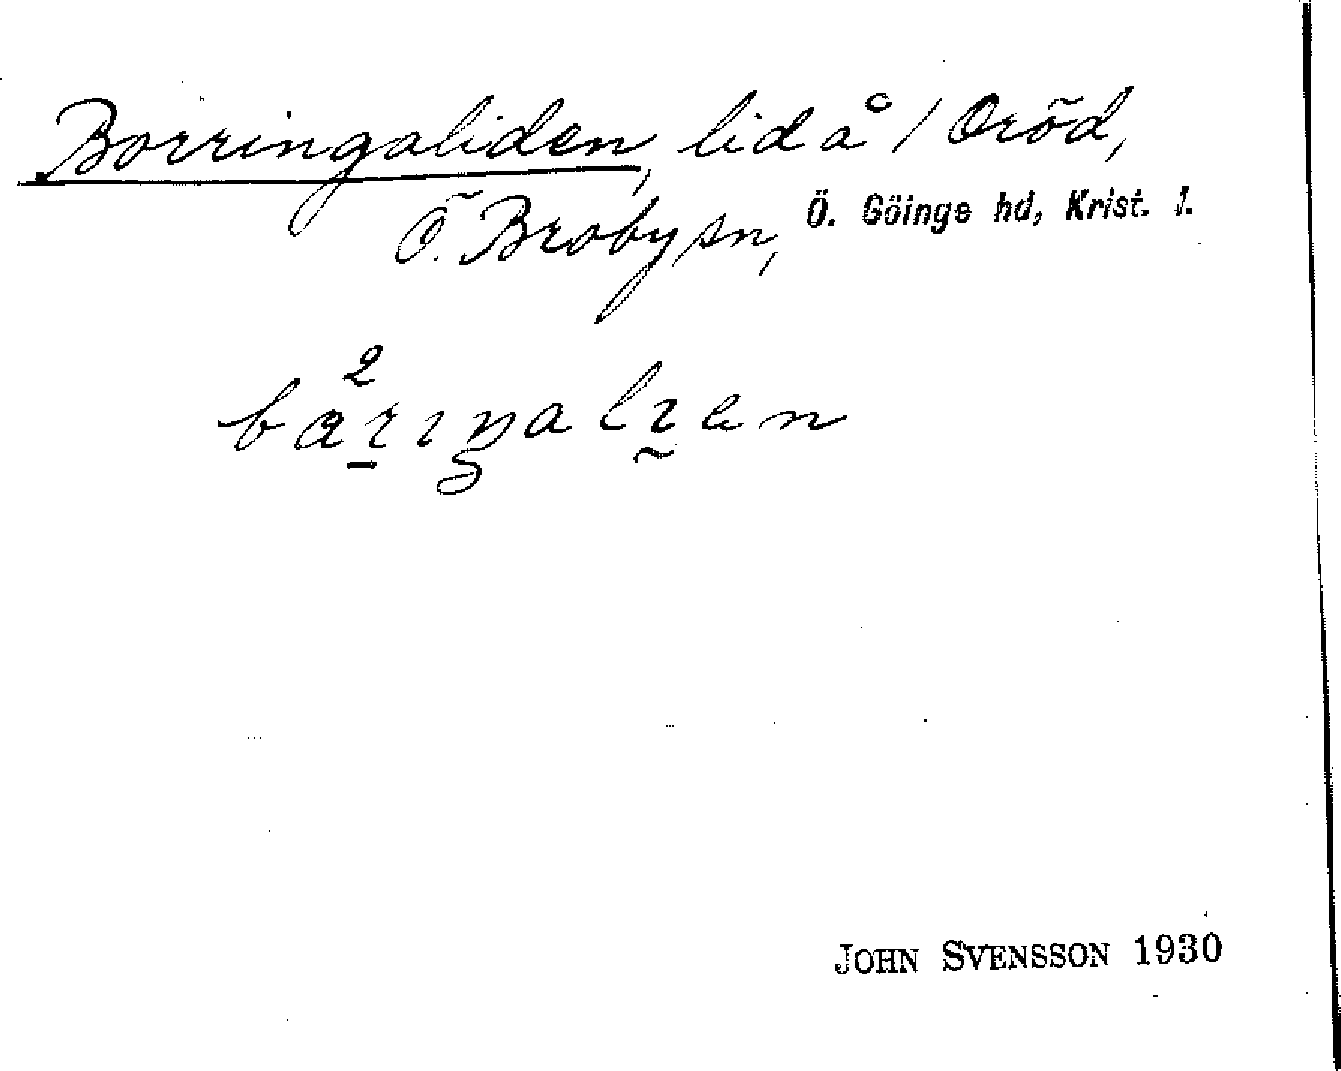 Borringaliden, lid å 1 Oröd,
Ö. Broby sn, Ö. Göinge hd, Krist. l.
JOHN SVENSSON 1930